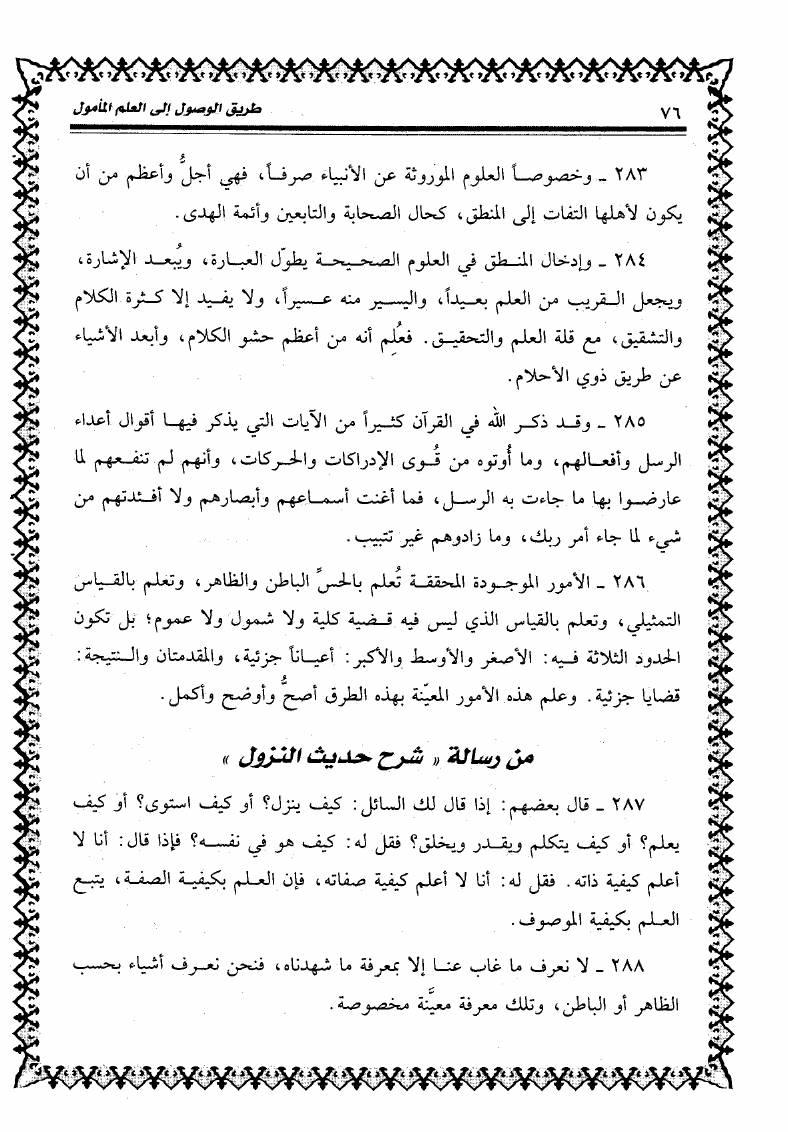 ٧٦
طريق الوصول إلى العلم المأمول
٢٨٣ ـ وخصوصاً العلوم الموروثة عن الأنبياء صرفاً، فهي أجلُّ وأعظم من أن
يكون لأهلها التفات إلى المنطق، كحال الصحابة والتابعين وأئمة الهدى.
٢٨٤ ـ وإدخال المنطق في العلوم الصحيحة يطوّل العبارة، ويُبعد الإشارة،
ويجعل القريب من العلم بعيداً، واليسير منه عسيراً، ولا يفيد إلا كثرة الكلام
والتشقيق، مع قلة العلم والتحقيق. فعُلِم أنه من أعظم حشو الكلام، وأبعد الأشياء
عن طريق ذوي الأحلام.
٢٨٥ ـ وقد ذكر الله في القرآن كثيراً من الآيات التي يذكر فيها أقوال أعداء
الرسل وأفعالهم، وما أُوتوه من قُوى الإدراكات والحركات، وأنهم لم تنفعهم لما
عارضوا بها ما جاءت به الرسل، فما أغنت أسماعهم وأبصارهم ولا أفئدتهم من
شيء لما جاء أمر ربك، وما زادوهم غير تتبيب.
٢٨٦ ـ الأمور الموجودة المحققة تُعلم بالحسِّ الباطن والظاهر، وتعلم بالقياس
التمثيلي، وتعلم بالقياس الذي ليس فيه قضية كلية ولا شمول ولا عموم؛ بل تكون
الحدود الثلاثة فيه: الأصغر والأوسط والأكبر: أعياناً جزئية، والمقدمتان والنتيجة:
قضايا جزئية. وعلم هذه الأمور المعيّنة بهذه الطرق أصحُّ وأوضح وأكمل.
من رسالة « شرح حديث النزول »
٢٨٧ ـ قال بعضهم: إذا قال لك السائل: كيف ينزل؟ أو كيف استوى؟ أو كيف
يعلم؟ أو كيف يتكلم ويقدر ويخلق؟ فقل له: كيف هو في نفسه؟ فإذا قال: أنا لا
أعلم كيفية ذاته. فقل له: أنا لا أعلم كيفية صفاته، فإن العلم بكيفية الصفة، يتبع
العلم بكيفية الموصوف.
٢٨٨ ـ لا نعرف ما غاب عنا إلا بمعرفة ما شهدناه، فنحن نعرف أشياء بحسب
الظاهر أو الباطن، وتلك معرفة معيَّنة مخصوصة.